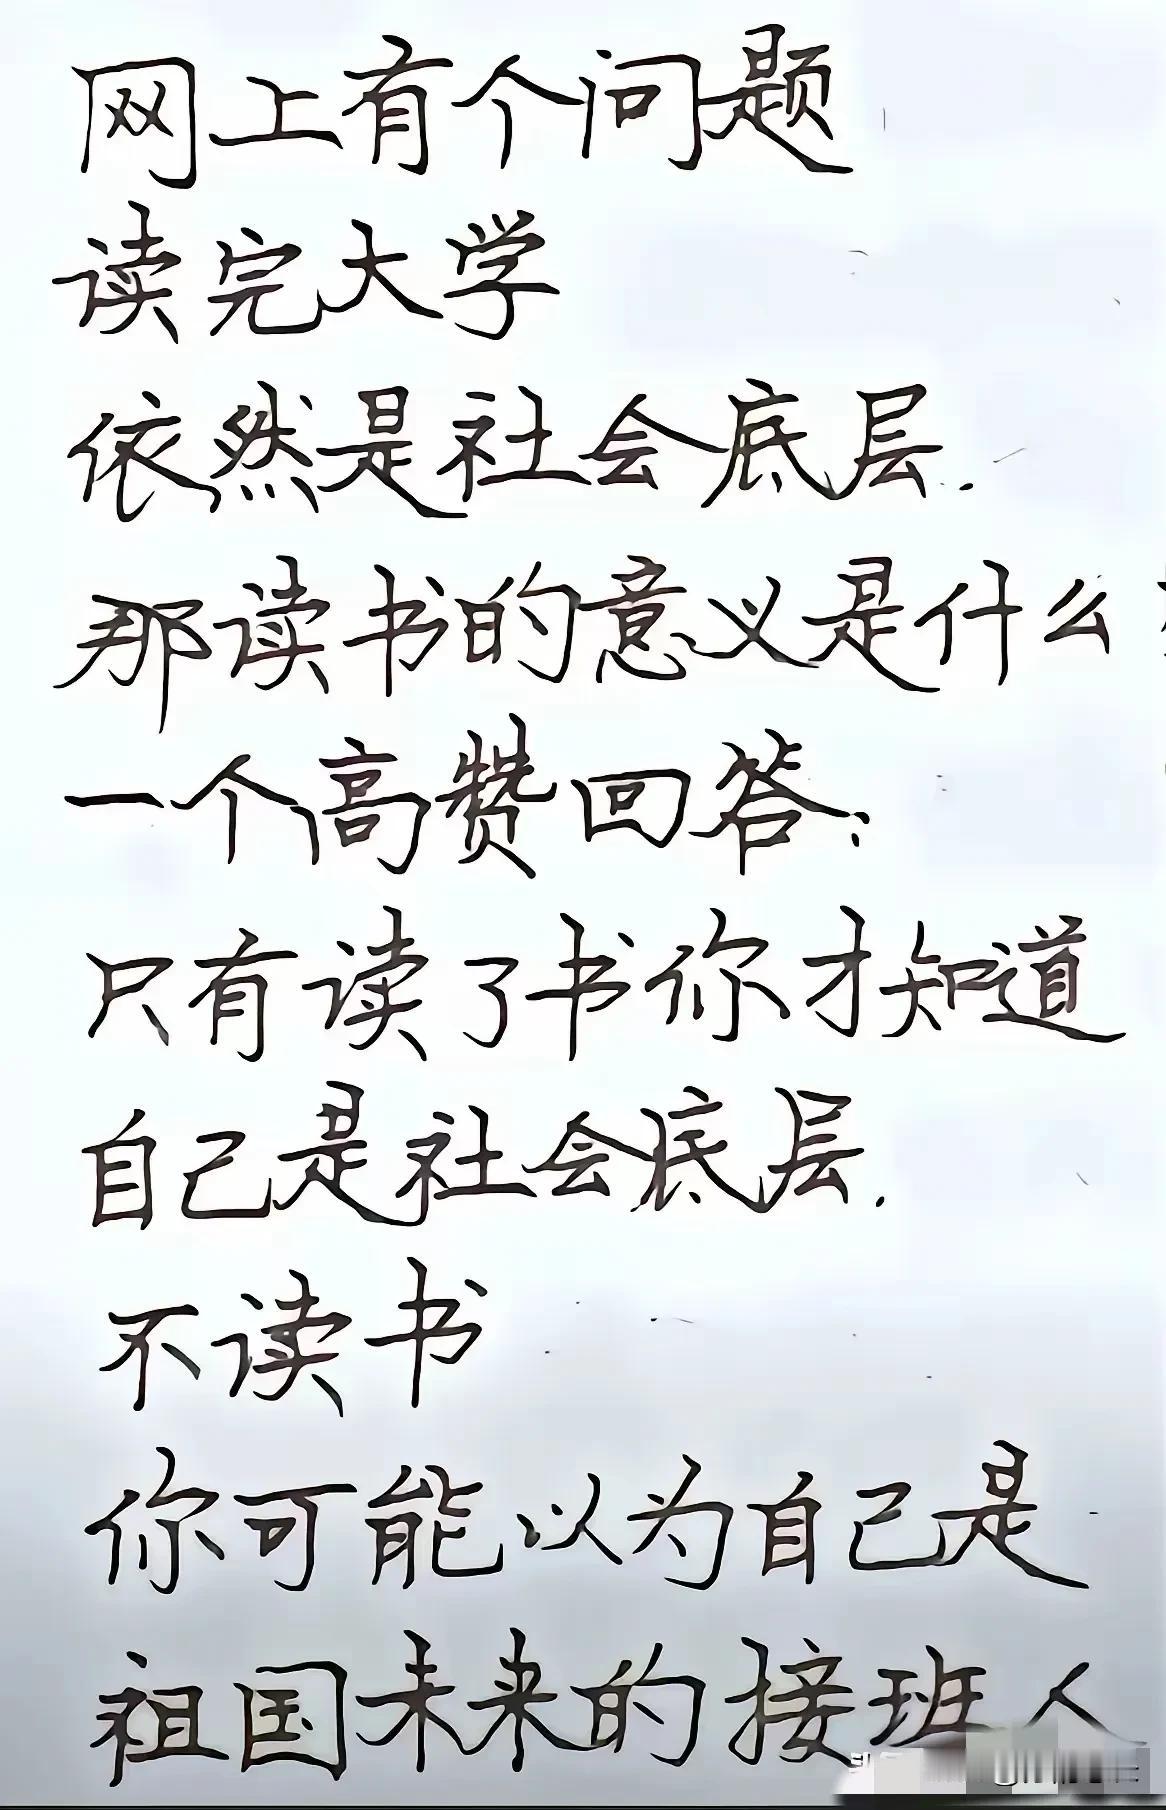 网上有个问题
读完大学
依然是社会底层.
那读书的意义是什么
一个高赞回答:
只有读了书你才知道
自己是社会底层.
不读书
你可能以为自己是
祖国未来的接班人